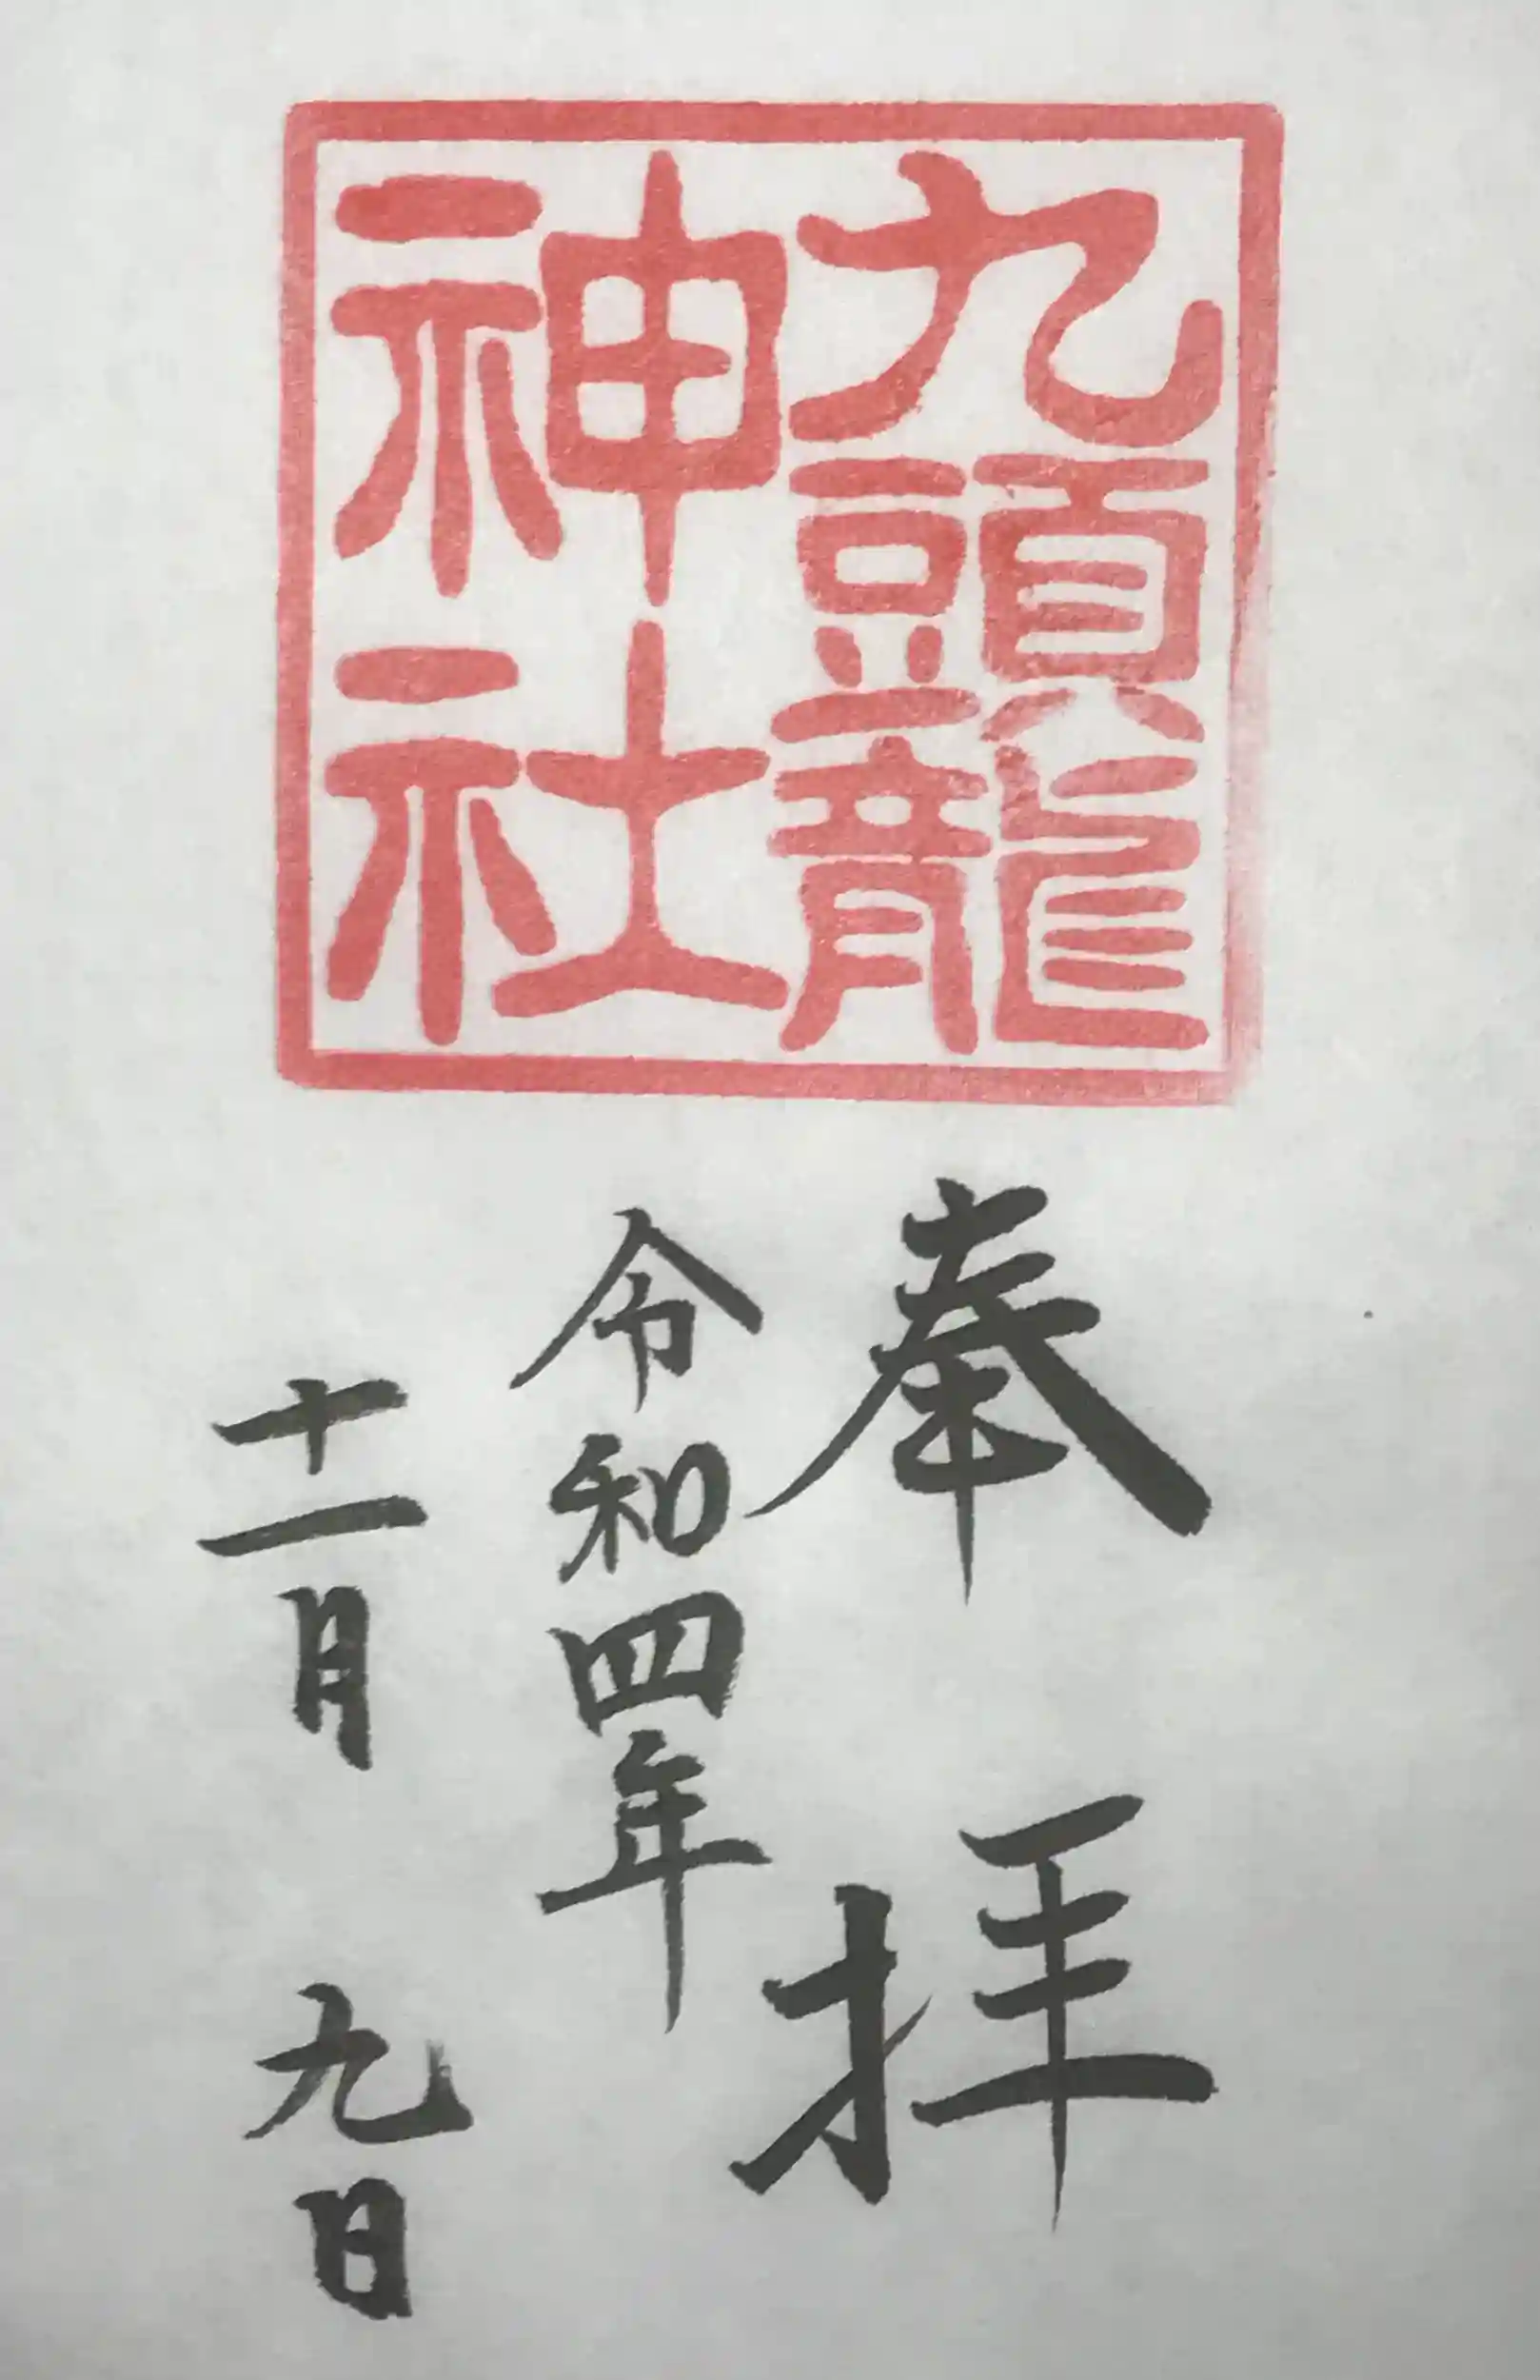 九頭龍
神社
奉拝
令和四年
十一月九日